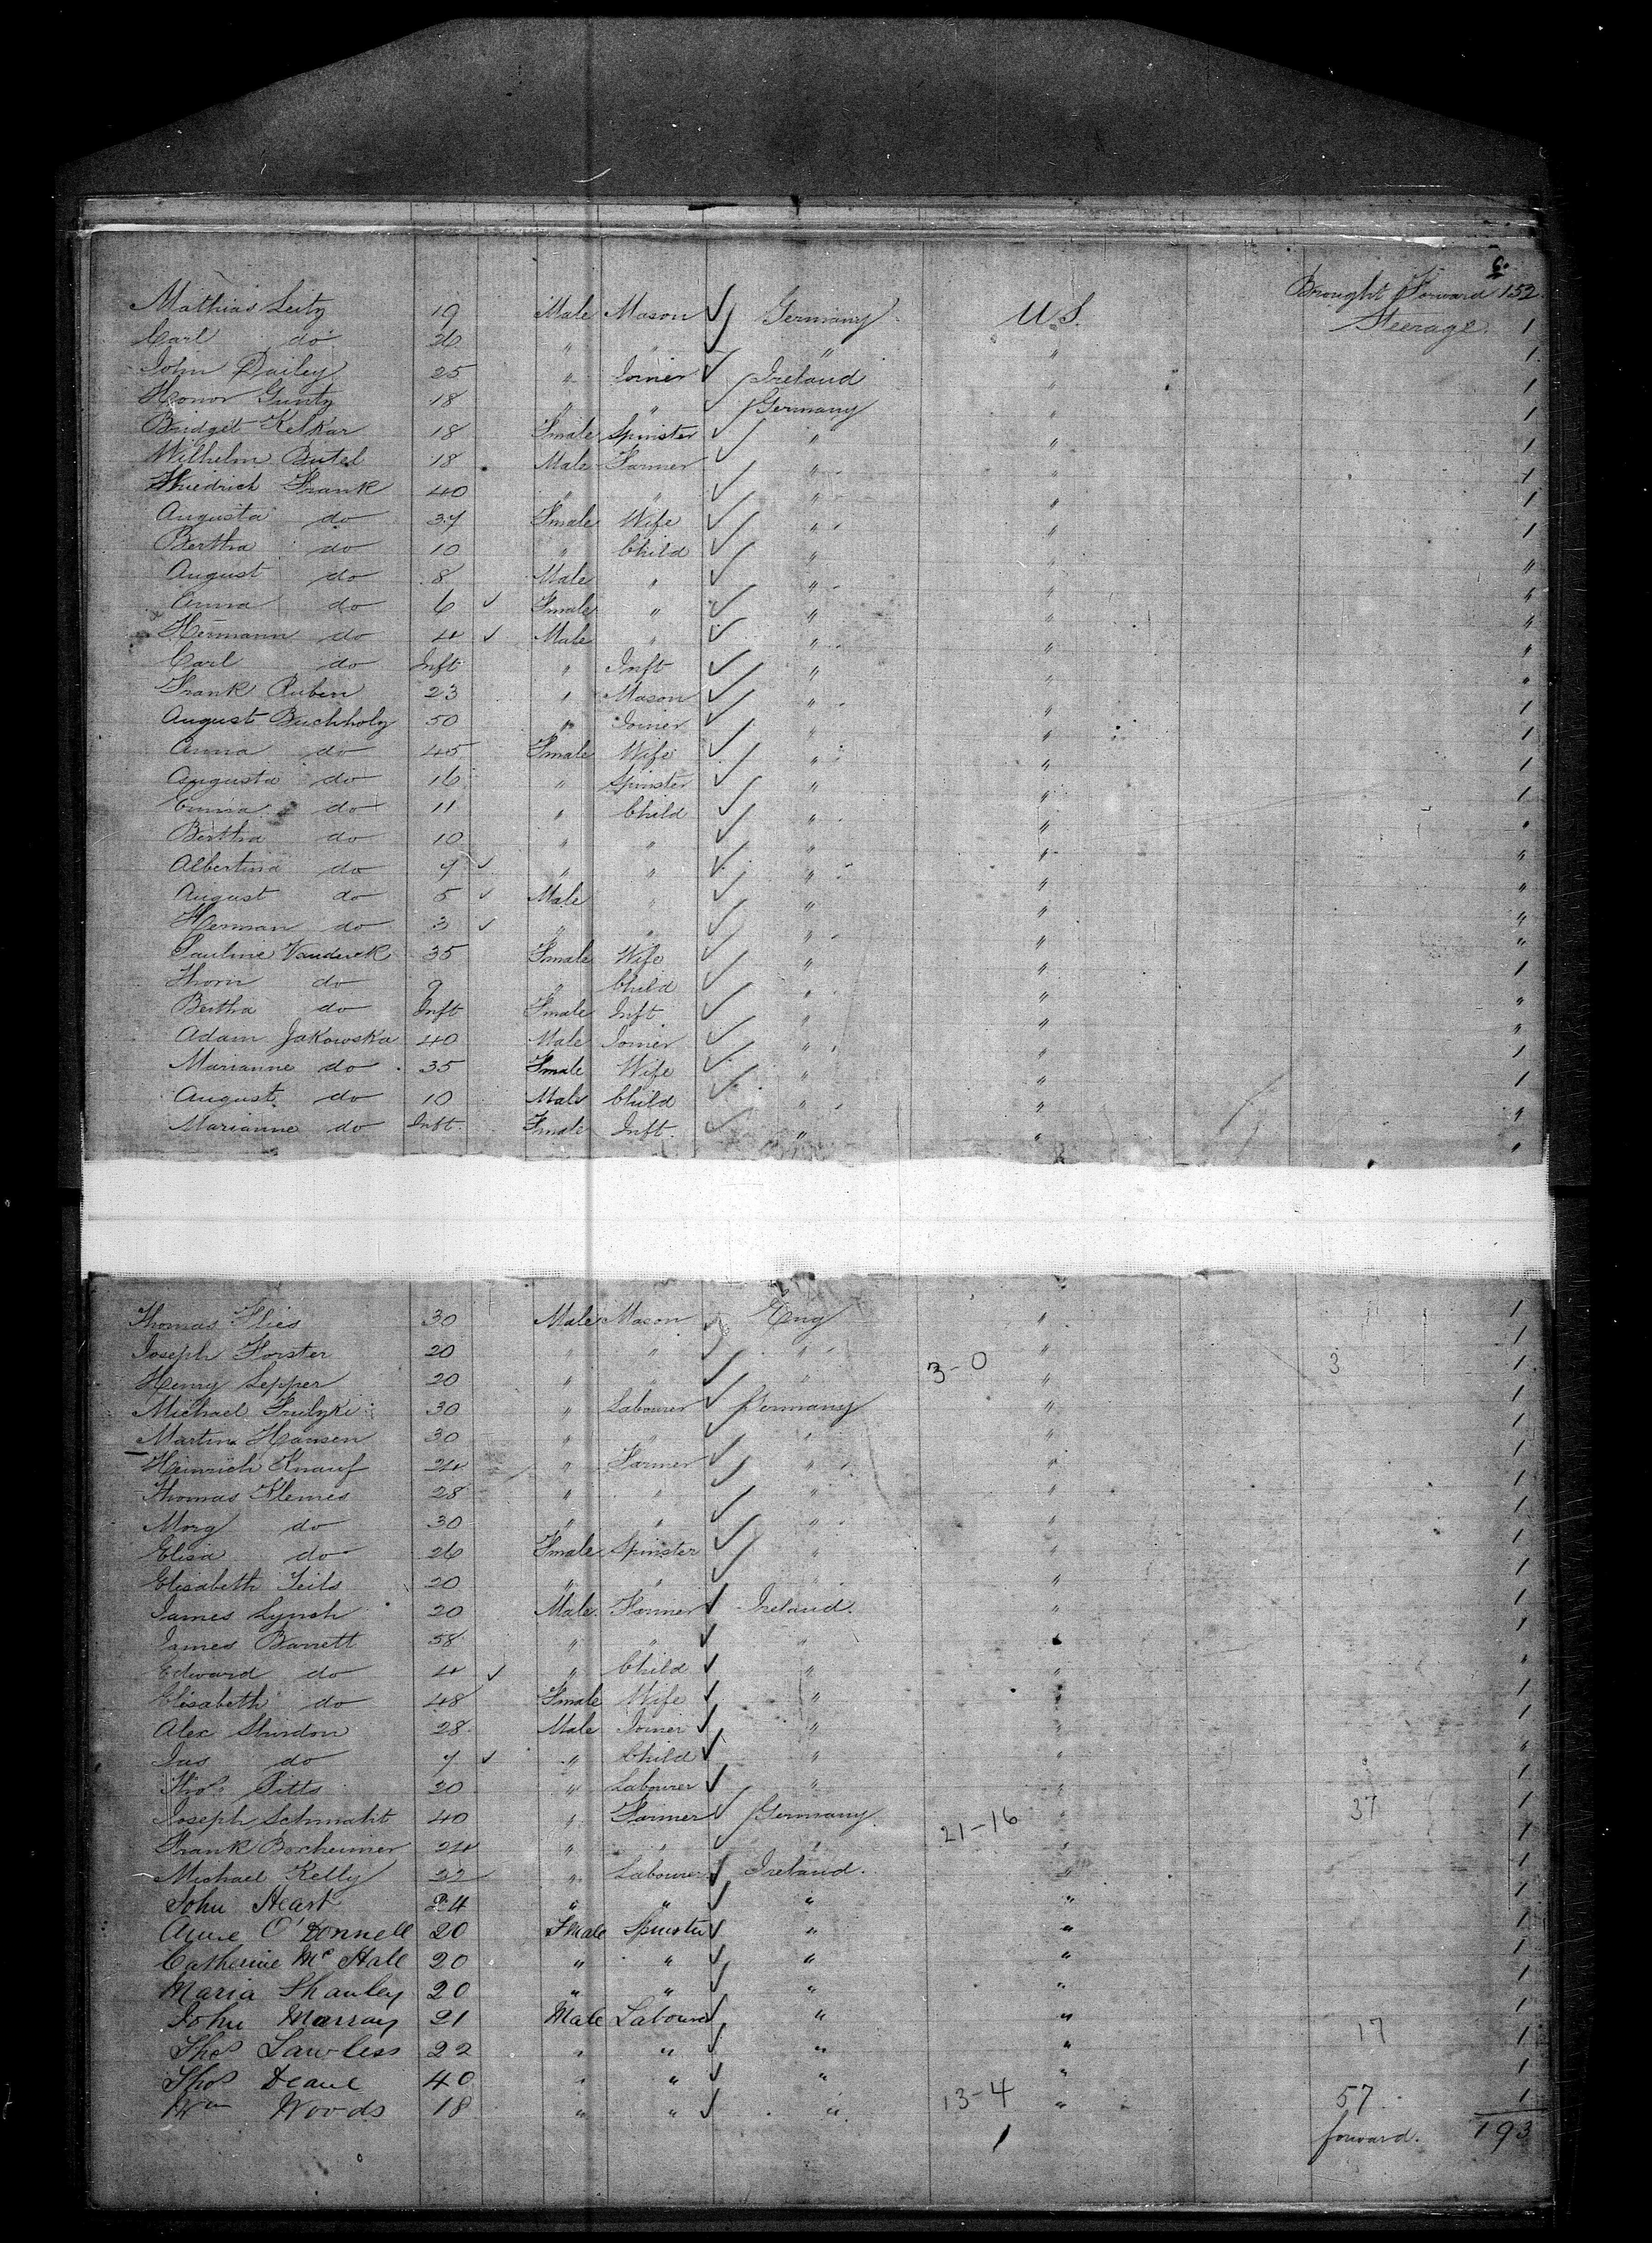 6.
Brought Forward 152.
Mathias Leitz 19 Male Mason ✓ Germany U.S. Steerage. 1
Carl do 26 " " ✓ " " 1
John Dailey 25 " Joiner ✓ Ireland " 1
Honor Guntz 18 " " ✓ Germany " 1
Bridget Kelkar 18 Fmale Spinster ✓ " " 1
Wilhelm Butel 18 Male Farmer ✓ " " 1
Friedrich Frank 40 " " ✓ " " 1
Augusta do 37 Fmale Wife ✓ " " 1
Bertha do 10 " Child ✓ " " "
August do 8 Male " ✓ " " "
Anna do 6 ✓ Fmale " ✓ " " "
Hermann do 4 ✓ Male " ✓ " " "
Carl do Inft " Inft ✓ " " "
Frank Rubin 23 " Mason ✓ " " 1
August Buchholz 50 " Joiner ✓ " " 1
Anna do 45 Fmale Wife ✓ " " 1
Augusta do 16 " Spinster ✓ " " 1
Emma do 11 " Child ✓ " " "
Bertha do 10 " " ✓ " " "
Albertina do 7 ✓ " " ✓ " " "
August do 5 ✓ Male " ✓ " " "
Herman do 3 ✓ " " ✓ " " "
Pauline Vanderek 35 Fmale Wife ✓ " " 1
Thom do 9 " Child ✓ " " "
Bertha do Inft Fmale Inft ✓ " " "
Adam Jakowska 40 Male Joiner ✓ " " 1
Marianne do 35 Fmale Wife ✓ " " 1
August do 10 Male Child ✓ " " "
Marianne do Inft. Fmale Inft. ✓ " " "
Thomas Flies 30 Male Mason ✓ Eng " 1
Joseph Forster 20 " " " " 1
Henry Lepper 20 " " ✓ " 3-0 " 3 1
Michael 30 " Labourer ✓ Germany " 1
Martin Hansen 30 " " ✓ " " 1
Heinrich Knauf 24 " Farmer ✓ " " 1
Thomas Klemes 28 " " ✓ " " 1
Morg do 30 " " ✓ " " 1
Elisa do 26 Fmale Spinster ✓ " " 1
Elisabeth Teils 20 " " ✓ " " 1
James Lynch 20 Male Farmer ✓ Ireland. " 1
James Barrett 58 " " ✓ " " 1
Edward do 4 ✓ " Child ✓ " " "
Elisabeth do 48 Fmale Wife ✓ " " 1
Alex 28 Male Joiner ✓ " " 1
Jas do 7 ✓ " Child ✓ " " "
Thos Pitts 20 " Labourer ✓ " " 1
Joseph Schmaht 40 " Farmer ✓ Germany 21-16 " 37 1
Frank Bocheimer 24 " " ✓ " " 1
Michael Kelly 22 " Labourer ✓ Ireland. " 1
John Heart 24 " " ✓ " " 1
Anne O'Donnell 20 Fmale Spinster ✓ " " 1
Catherine Mc Hale 20 " " ✓ " " 1
Maria Shanley 20 " " ✓ " " 1
John Murray 21 Male Labourer ✓ " " 1
Thos Lawless 22 " " ✓ " " 17 1
Thos Deane 40 " " ✓ " " 1
Wm Woods 18 " " ✓ " 13-4 " 57 1
1 forward. 193